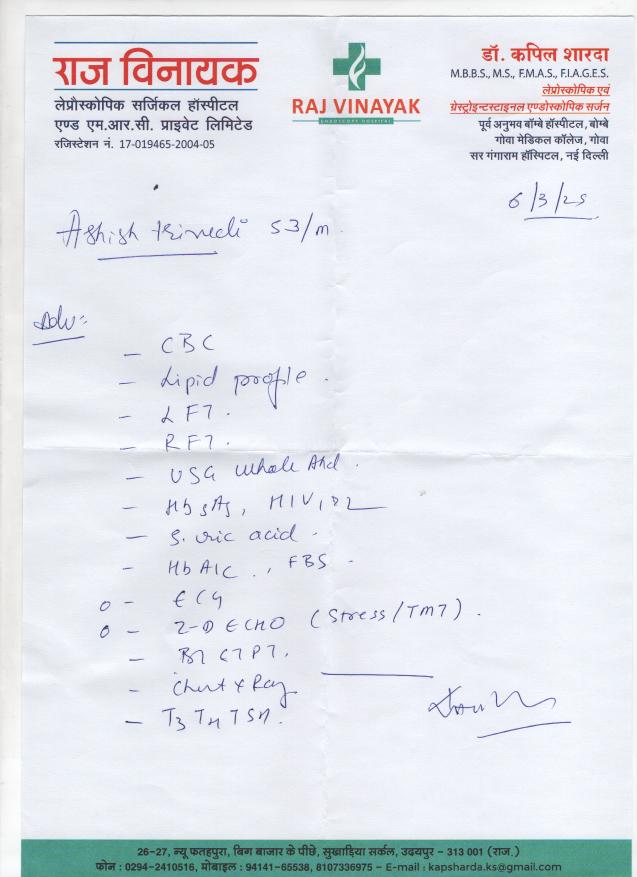 राज विनायक
लेप्रौस्कोपिक सर्जिकल हॉस्पीटल
एण्ड एम.आर.सी. प्राइवेट लिमिटेड
रजिस्टेशन नं. 17-019465-2004-05
RAJ VINAYAK
ENDOSCOPY HOSPITAL
डॉ. कपिल शारदा
M.B.B.S., M.S., F.M.A.S., F.I.A.G.E.S.
लेप्रोस्कोपिक एवं
गेस्ट्रोइन्टस्टाइनल एण्डोस्कोपिक सर्जन
पूर्व अनुभव बॉम्बे हॉस्पीटल, बोम्बे
गोवा मेडिकल कॉलेज, गोवा
सर गंगाराम हॉस्पिटल, नई दिल्ली
6/3/25
Ashish trivedi 53/m
Adv:-
- CBC
- Lipid profile.
- LFT.
- RFT.
- USG whole Abd.
- HbsAg, HIV 1 & 2
- S. uric acid.
- HbA1C., FBS.
o - ECG
o - 2-D ECHO (Stress/TMT).
- BT CT PT.
- Chest X Ray
- T3 T4 TSH.
26-27, न्यू फतहपुरा, बिग बाजार के पीछे, सुखाड़िया सर्कल, उदयपुर - 313 001 (राज.)
फोन : 0294-2410516, मोबाइल : 94141-65538, 8107336975 - E-mail : kapsharda.ks@gmail.com